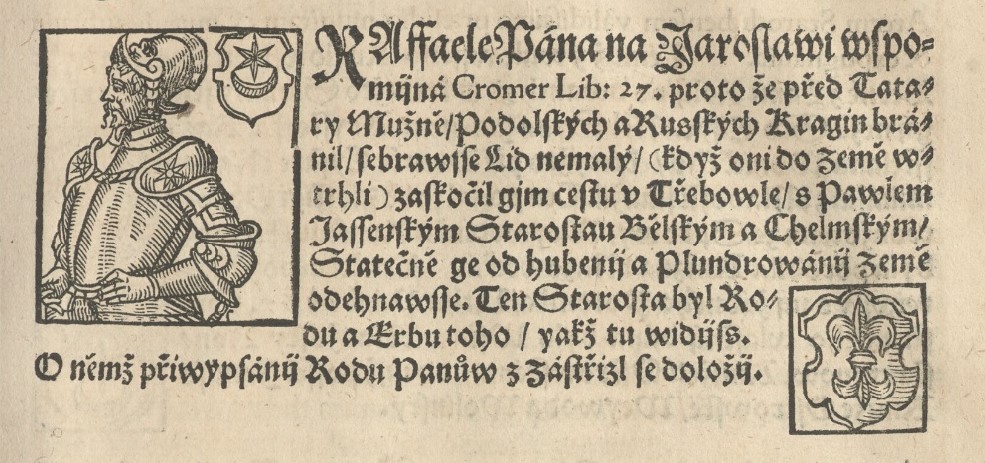 RAffaele Pána na Jaroslawi wspo-
mijná Cromer Lib: 27. proto že před Tata-
ry Mužně/Podolských a Ruských Kragin brá-
nil/ sebrawsse Lid nemalý/ (když oni do země w-
trhli) zaskočil gjm cestu v Třebowle/ s Pawlem
Jassenským Starostau Bělským a Chelmským/
Statečně ge od hubenij a Plundrowánij země
odehnawsse. Ten Starosta byl Ro-
du a Erbu toho / yakž tu widijss.
O němž přiwypsánij Rodu Panůw z Zástřizl se doložij.